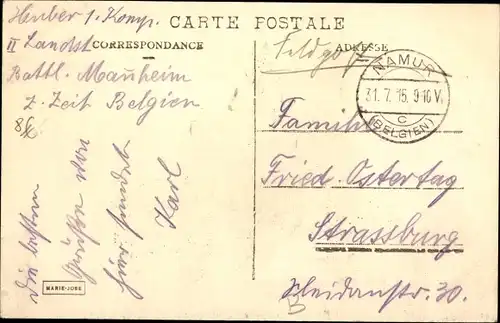 CARTE POSTALE
CORRESPONDANCE
ADRESSE
Huber 1. Komp.
II Landst
Battl. Mannheim
z. Zeit Belgien
Feldpost
NAMUR
31. 7. 15. 9-10 V.
C
(BELGIEN)
Familie
Fried. Ostertag
Strassburg
30.
Die besten
Grüsse von
Karl
MARIE-JOSE